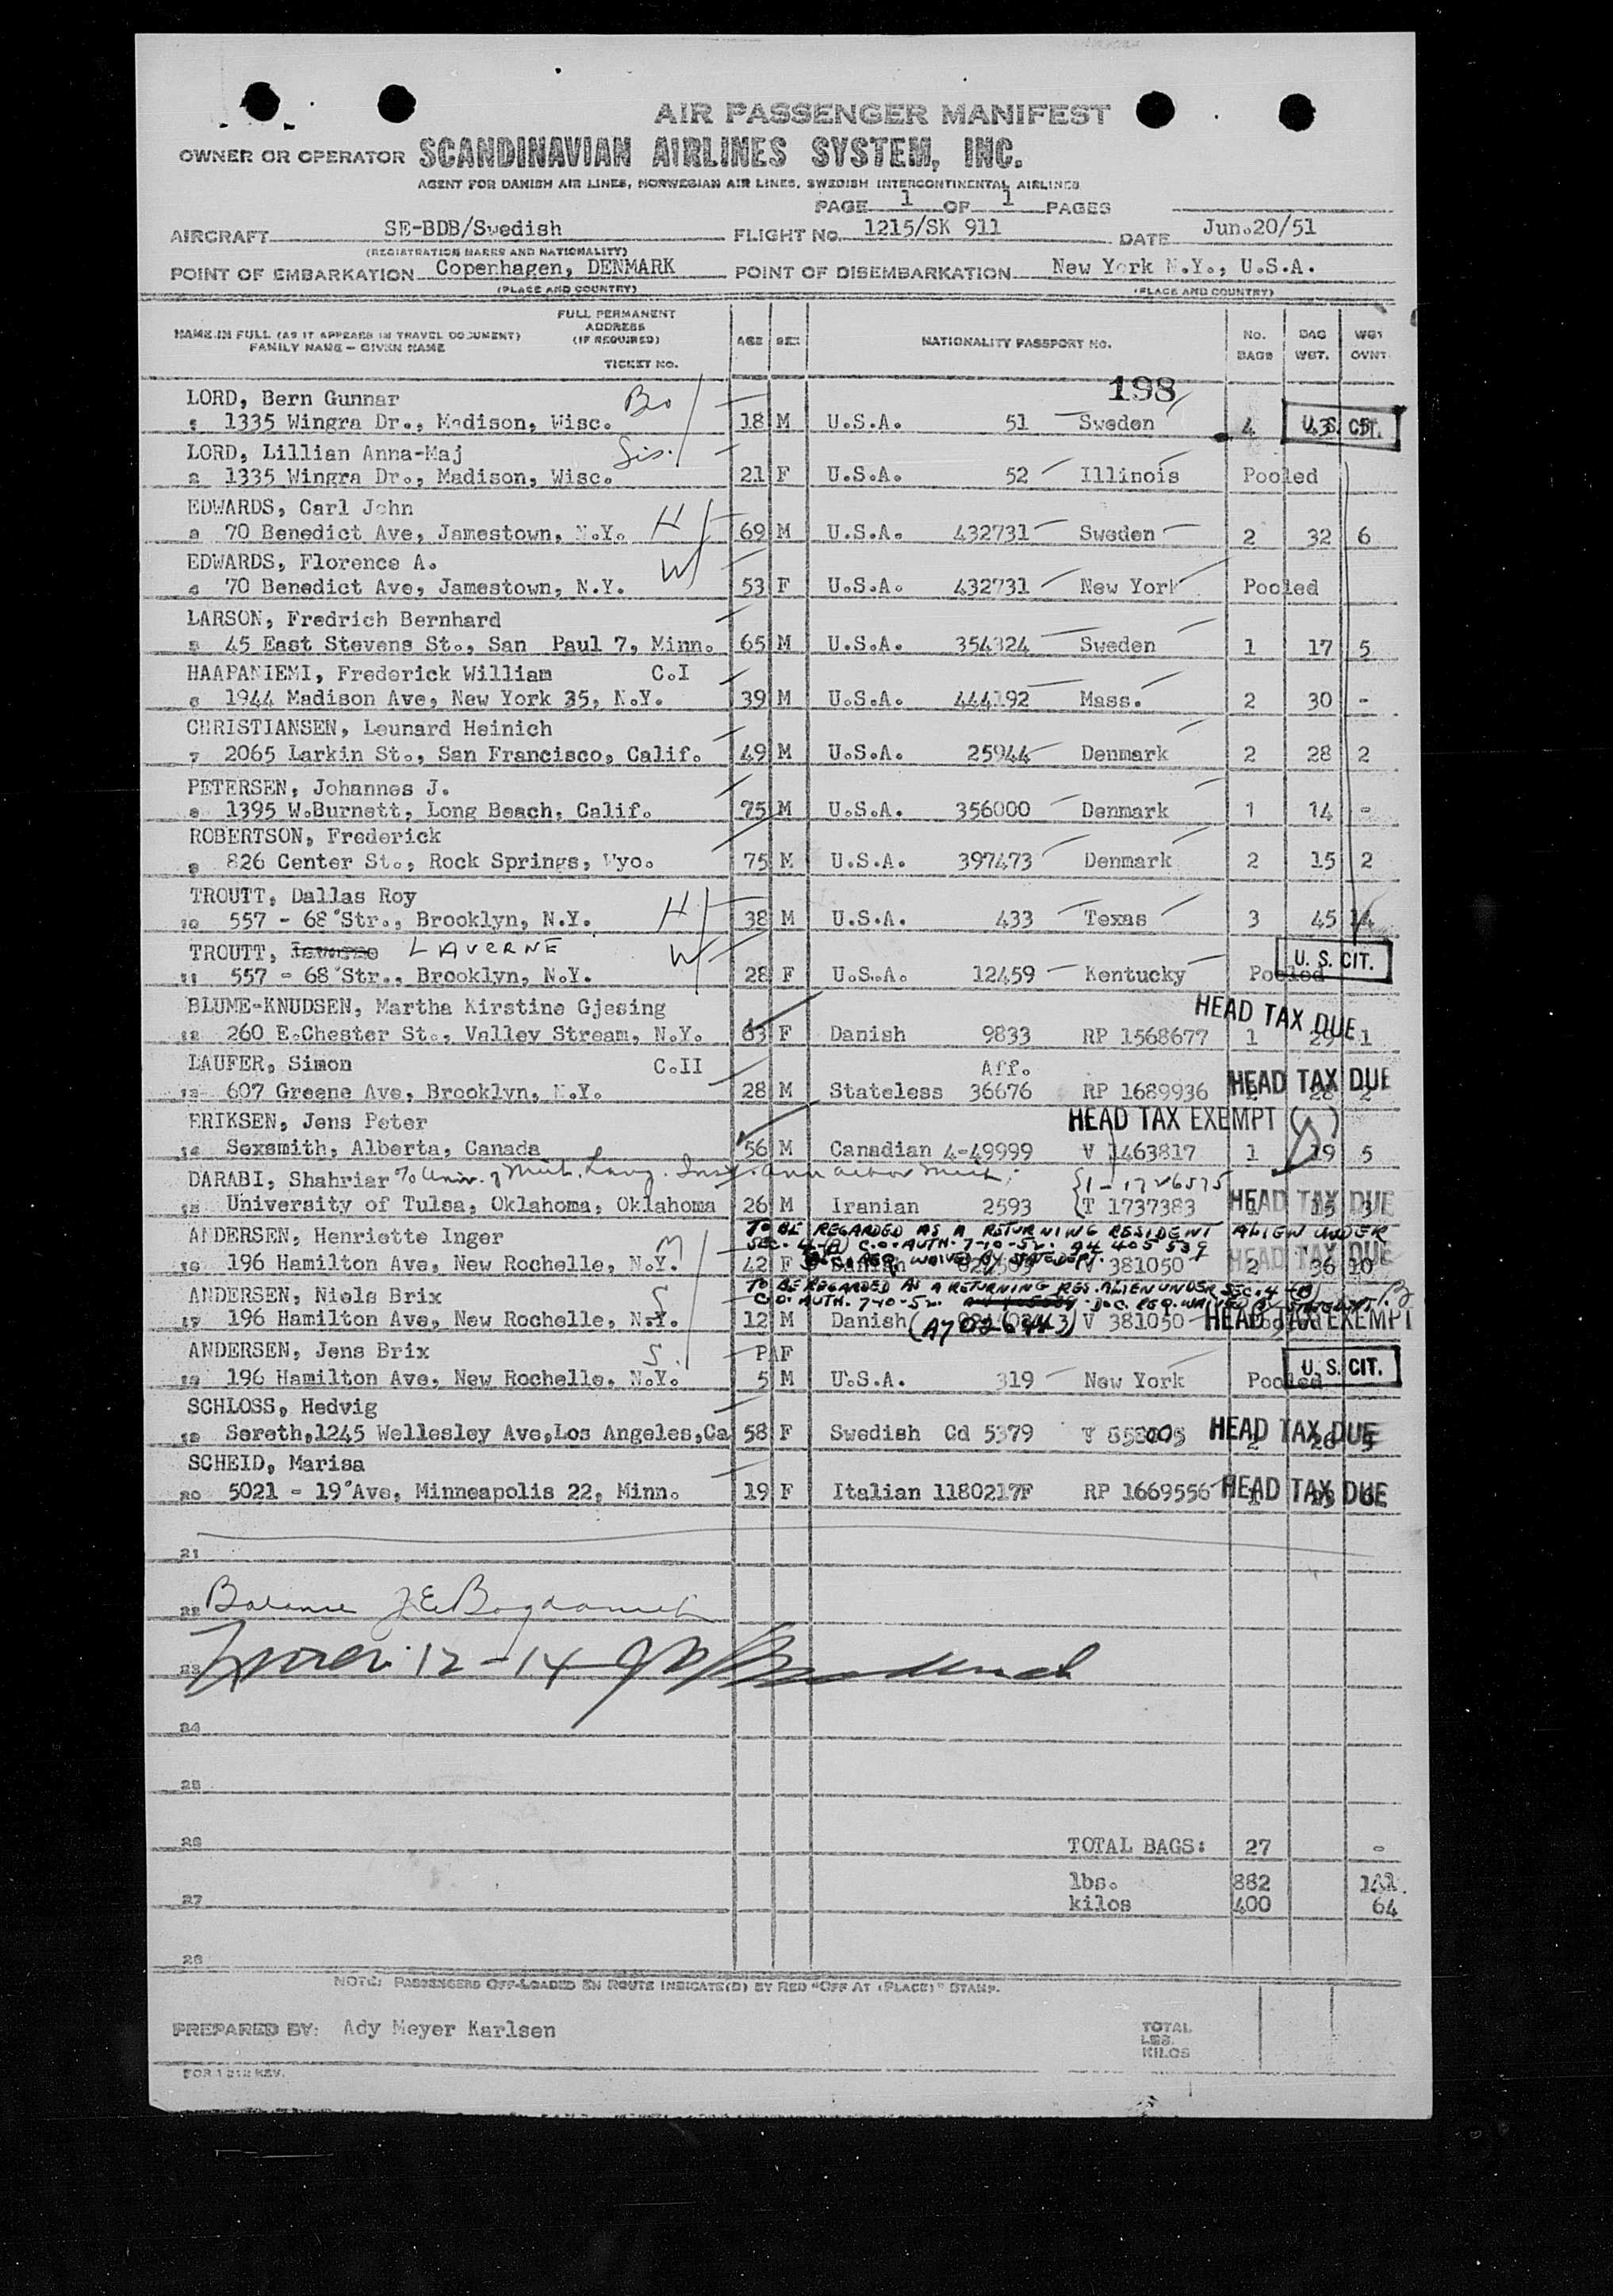 AIR PASSENGER MANIFEST
OWNER OR OPERATOR SCANDINAVIAN AIRLINES SYSTEM, INC.
AGENT FOR DANISH AIR LINES, NORWEGIAN AIR LINES, SWEDISH INTERCONTINENTAL AIRLINES
PAGE 1 OF 1 PAGES
AIRCRAFT SE-BDB/Swedish FLIGHT No. 1215/SK 911 DATE Jun.20/51
(REGISTRATION MARKS AND NATIONALITY)
POINT OF EMBARKATION Copenhagen, DENMARK POINT OF DISEMBARKATION New York N.Y., U.S.A.
(PLACE AND COUNTRY) (PLACE AND COUNTRY)
NAME IN FULL (AS IT APPEARS IN TRAVEL DOCUMENT) FAMILY NAME - GIVEN NAME
FULL PERMANENT ADDRESS (IF REQUIRED) TICKET NO.
AGE SEX NATIONALITY PASSPORT NO. NO. BAGS BAG WGT. WGT OVNT
198
LORD, Bern Gunnar Bro
1335 Wingra Dr., Madison, Wisc. 18 M U.S.A. 51 Sweden 4 43 U.S. CIT.
LORD, Lillian Anna-Maj Sis.
2 1335 Wingra Dr., Madison, Wisc. 21 F U.S.A. 52 Illinois Pooled
EDWARDS, Carl John H
70 Benedict Ave, Jamestown, N.Y. 69 M U.S.A. 432731 Sweden 2 32 6
EDWARDS, Florence A. W
70 Benedict Ave, Jamestown, N.Y. 53 F U.S.A. 432731 New York Pooled
LARSON, Fredrich Bernhard
45 East Stevens St., San Paul 7, Minn. 65 M U.S.A. 354324 Sweden 1 17 5
HAAPANIEMI, Frederick William C.I
6 1944 Madison Ave, New York 35, N.Y. 39 M U.S.A. 444192 Mass. 2 30 -
CHRISTIANSEN, Leunard Heinich
7 2065 Larkin St., San Francisco, Calif. 49 M U.S.A. 25944 Denmark 2 28 2
PETERSEN, Johannes J.
8 1395 W.Burnett, Long Beach, Calif. 75 M U.S.A. 356000 Denmark 1 14 -
ROBERTSON, Frederick
9 826 Center St., Rock Springs, Wyo. 75 M U.S.A. 397473 Denmark 2 15 2
TROUTT, Dallas Roy H
10 557 - 68 Str., Brooklyn, N.Y. 38 M U.S.A. 433 Texas 3 45 14
TROUTT, LAVERNE W U.S. CIT.
11 557 - 68 Str., Brooklyn, N.Y. 28 F U.S.A. 12459 Kentucky Pooled
BLUME-KNUDSEN, Martha Kirstine Gjesing HEAD TAX DUE
12 260 E.Chester St., Valley Stream, N.Y. 63 F Danish 9833 RP 1568677 1 29 1
LAUFER, Simon C.II Aff. HEAD TAX DUE
13 607 Greene Ave, Brooklyn, N.Y. 28 M Stateless 36676 RP 1689936 28 2
ERIKSEN, Jens Peter HEAD TAX EXEMPT
14 Sexsmith, Alberta, Canada 56 M Canadian 4-49999 V 1463817 1 19 5
DARABI, Shahriar % Univ. of Mich. Lang. Inst. Ann Arbor Mich. 1-1726575
15 University of Tulsa, Oklahoma, Oklahoma 26 M Iranian 2593 T 1737383 1 15 3 HEAD TAX DUE
TO BE REGARDED AS A RETURNING RESIDENT ALIEN UNDER
ANDERSEN, Henriette Inger M SEC. 4-(B) C.O. AUTH. 7-10-52. A4 405 539 HEAD TAX DUE
16 196 Hamilton Ave, New Rochelle, N.Y. 42 F Danish V 381050 2 36 10
TO BE REGARDED AS A RETURNING RES. ALIEN UNDER SEC. 4-(B)
ANDERSEN, Niels Brix S C.O. AUTH. 7-10-52. DOC. REQ. WAIVED BY STATE DEPT.
17 196 Hamilton Ave, New Rochelle, N.Y. 12 M Danish V 381050 HEAD TAX EXEMPT
ANDERSEN, Jens Brix S. PAF U.S. CIT.
196 Hamilton Ave, New Rochelle, N.Y. 5 M U.S.A. 319 New York Pooled
SCHLOSS, Hedvig
Sereth,1245 Wellesley Ave,Los Angeles,Ca 58 F Swedish Cd 5379 HEAD TAX DUE 2 26 5
SCHEID, Marisa
20 5021 - 19 Ave, Minneapolis 22, Minn. 19 F Italian 1180217F RP 1669556 HEAD TAX DUE
21
22
23 12-14
24
25
26 TOTAL BAGS: 27 -
lbs. 882 141
27 kilos 400 64
28
NOTE: PASSENGERS OFF-LOADED EN ROUTE INDICATE(D) BY RED "OFF AT (PLACE)" STAMP.
PREPARED BY: Ady Meyer Karlsen TOTAL LBS. KILOS
FOR 1 212 REV.